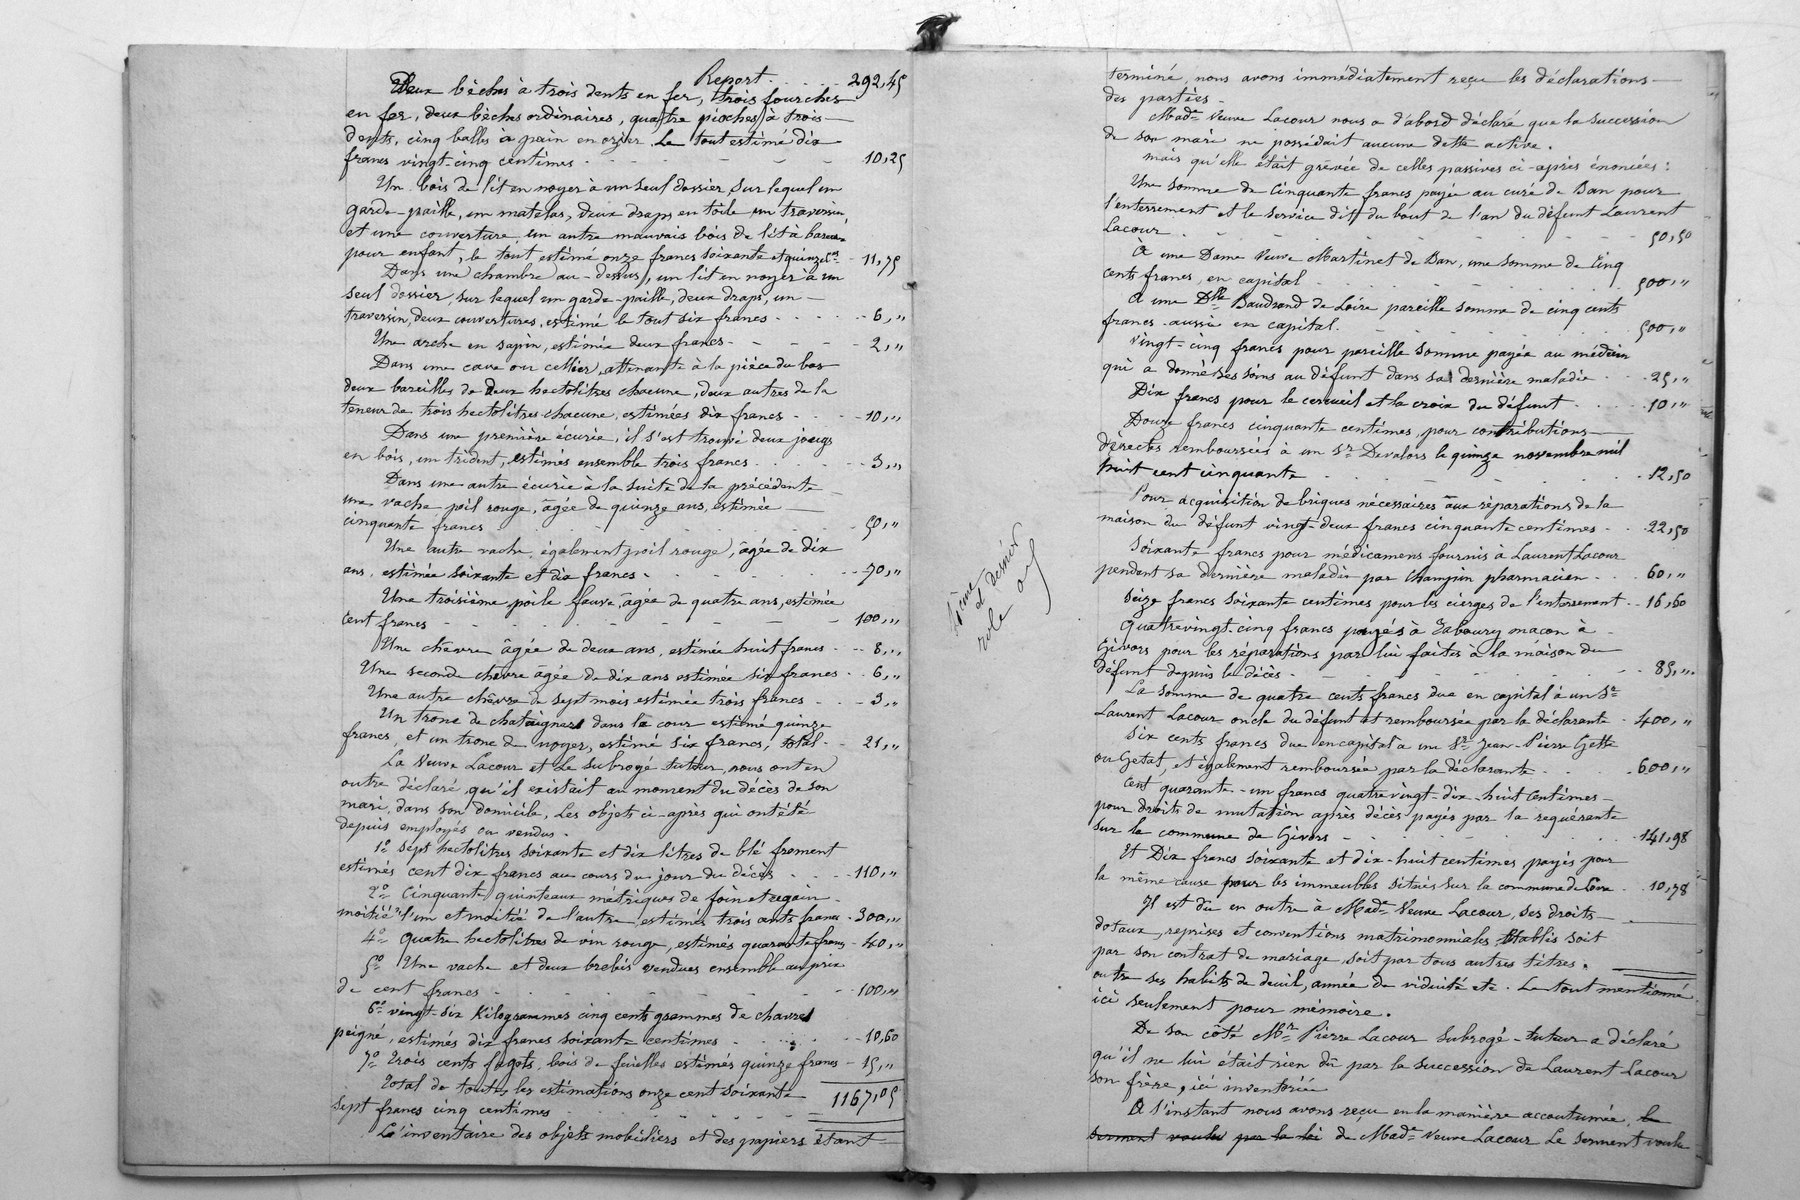 Report. . . . 292,45
Deux bêches à trois dents en fer, trois fourches
en fer, deux bêches ordinaires, quatre pioches à trois
dents, cinq balles à pain en ozier. Le tout estimé dix
francs vingt-cinq centimes - - - - 10,25
Un bois de lit en noyer à un seul dossier, sur lequel un
garde-paille, un matelas, deux draps en toile un traversin,
et une couverture un autre mauvais bois de lit à
pour enfant, le tout estimé onze francs soixante et quinze cmes - 11,75
Dans une chambre au-dessus, un lit en noyer à un
seul dossier, sur lequel un garde-paille, deux draps, un
traversin, deux couvertures, estimé le tout six francs - - - - 6,"
Une arche en sapin, estimée deux francs - - - - 2,"
Dans une cave ou cellier, attenante à la pièce du bas
deux bareilles de deux hectolitres chacune, deux autres de la
teneur de trois hectolitres chacune, estimées dix francs - - - 10,"
Dans une première écurie, il s'est trouvé deux jougs
en bois, un trident, estimés ensemble trois francs - - - 3,"
Dans une autre écurie à la suite de la précédente
une vache poil rouge, âgée de quinze ans, estimée
cinquante francs - - - - 50,"
Une autre vache, également poil rouge, âgée de dix
ans, estimée soixante et dix francs - - - - 70,"
Une troisième, poile fauve, âgée de quatre ans, estimée
cent francs - - - - 100,"
Une chèvre âgée de deux ans, estimée huit francs - - 8,"
Une seconde chèvre âgée de dix ans estimée six francs - - 6,"
Une autre chèvre de sept mois estimée trois francs - - 3,"
Un tronc de chataigner dans la cour estimé quinze
francs, et un tronc de noyer, estimé six francs, total - - 21,"
La Veuve Lacour et le subrogé tuteur, nous ont en
outre déclaré qu'il existait au moment du décès de son
mari, dans son domicile, les objets ci-après qui ont été
depuis employés ou vendus.
1° sept hectolitres soixante et dix litres de blé froment
estimés cent dix francs au cours du jour du décès - - - 110,"
2° Cinquante quinteaux métriques de foin et regain
moitié l'un et moitié de l'autre, estimés trois cents francs - 300,"
4° Quatre hectolitres de vin rouge, estimés quarante francs - 40,"
5° Une vache et deux brebis vendues ensemble au prix
de cent francs - - - - 100,"
6° vingt-six Kilogrammes cinq cents grammes de chanvre
peigné, estimés dix francs soixante centimes - - - 10,60
7° Trois cents fagots, bois de feuilles estimés quinze francs - 15,"
Total de toutes les estimations onze cent soixante
sept francs cinq centimes - - - - 1167,05
L'inventaire des objets mobiliers et des papiers étant
et dernier
role
terminé, nous avons immédiatement reçu les déclarations
des parties.
Made Veuve Lacour nous a d'abord déclaré que la succession
de son mari ne possédait aucune dette active.
Mais qu'elle était grévée de celles passives ci-après énoncées :
Une somme de Cinquante francs payée au curé de Dan pour
l'enterrement et le service dit du bout de l'an du défunt Laurent
Lacour - - - - 50,50
À une Dame Veuve Martinet de Dan, une somme de cinq
cents francs, en capital - - - - 500,"
À une Dlle Baudrand de Loire pareille somme de cinq cents
francs aussi en capital. - - - - 500,"
Vingt-cinq francs pour pareille somme payée au médecin
qui a donné ses soins au défunt dans sa dernière maladie - - 25,"
Dix francs pour le cercueil et la croix du défunt - - - 10,"
Douze francs cinquante centimes, pour contributions
directes remboursées à un Sr Devalors le quinze novembre mil
huit cent cinquante - - - - 12,50
Pour acquisition de briques nécessaires aux réparations de la
maison du défunt vingt-deux francs cinquante centimes - - 22,50
Soixante francs pour médicamens fournis à Laurent Lacour
pendant sa dernière maladie par Champin pharmacien - - - 60,"
Seize francs soixante centimes pour les cierges de l'enterrement - - 16,60
Quatrevingt-cinq francs payés à Zabourg macon à
Givors pour les réparations par lui faites à la maison du
défunt depuis le décès - - - - 85,"
La somme de quatre cents francs due en capital à un Sr
Laurent Lacour oncle du défunt et remboursée par la déclarante - 400,"
Six cents francs due en capital à un Sr Jean-Pierre Gette
ou Getat, et également remboursée par la déclarante - - - 600,"
Cent quarante-un francs quatrevingt-dix-huit centimes
pour droits de mutation après décès payés par la requérante
sur la commune de Givors - - - - 141,98
Et Dix francs soixante et dix-huit centimes payés pour
la même cause pour les immeubles situés sur la commune de Loire - - 10,78
Il est dû en outre à Made Veuve Lacour, ses droits
dotaux, reprises et conventions matrimonniales établis soit
par son contrat de mariage, soit par tous autres titres.
outre ses habits de deuil, année de viduité etc. Le tout mentionné
ici seulement pour mémoire.
De son côté Mr Pierre Lacour subrogé-tuteur a déclaré
qu'il ne lui était rien dû par la succession de Laurent Lacour
son frère, ici inventoriée
À l'instant nous avons reçu en la manière accoutumée, le
serment voulu par la loi de Made Veuve Lacour Le serment voulu